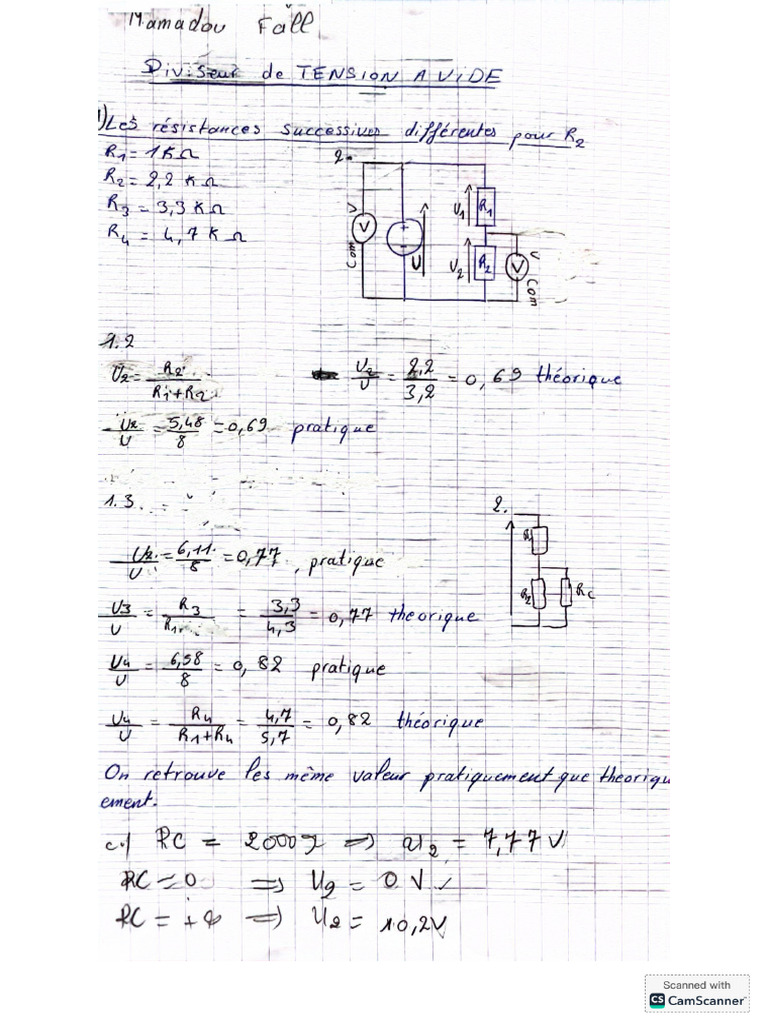 Mamadou Fall
Diviseur de TENSION A VIDE
1) Les résistances successives différentes pour R2
R1 = 1KΩ
R2 = 2,2 KΩ
R3 = 3,3 KΩ
R4 = 4,7 KΩ
2.
V
V
Com
+
-
U
U1
R1
U2
R2
V
V
Com
1.2
U2 = R2 / R1+R2
U2/U = 2,2/3,2 = 0,69 théorique
U2/U = 5,48/8 = 0,69 pratique
1.3.
2.
R1
R2
RC
U2/U = 6,11/8 = 0,77, pratique
U3/U = R3/R1 = 3,3/4,3 = 0,77 theorique
U4/U = 6,58/8 = 0,82 pratique
U4/U = R4/R1+R4 = 4,7/5,7 = 0,82 théorique
On retrouve les même valeur pratiquement que theoriqu
ement.
c1) RC = 2000Ω => U2 = 7,77 V
RC = 0 => U2 = 0 V
RC = +∞ => U2 = 10,2V
Scanned with
CS CamScanner